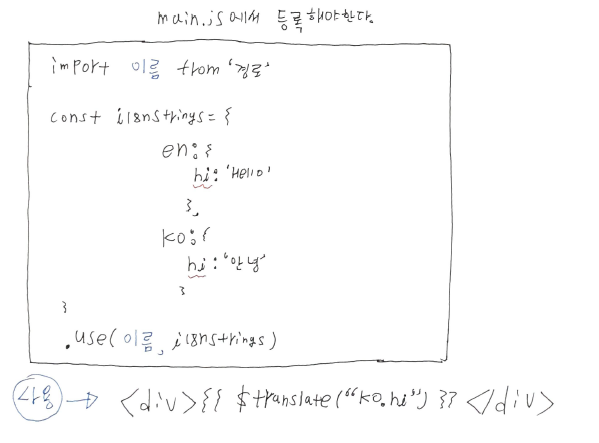 main.js에서 등록해야한다.
import 이름 from '경로'
const i18nstrings = {
en: {
hi: 'Hello'
},
ko: {
hi: '안녕'
}
}
.use(이름, i18nstrings)
사용 → <div>{{ $translate("ko.hi") }} </div>